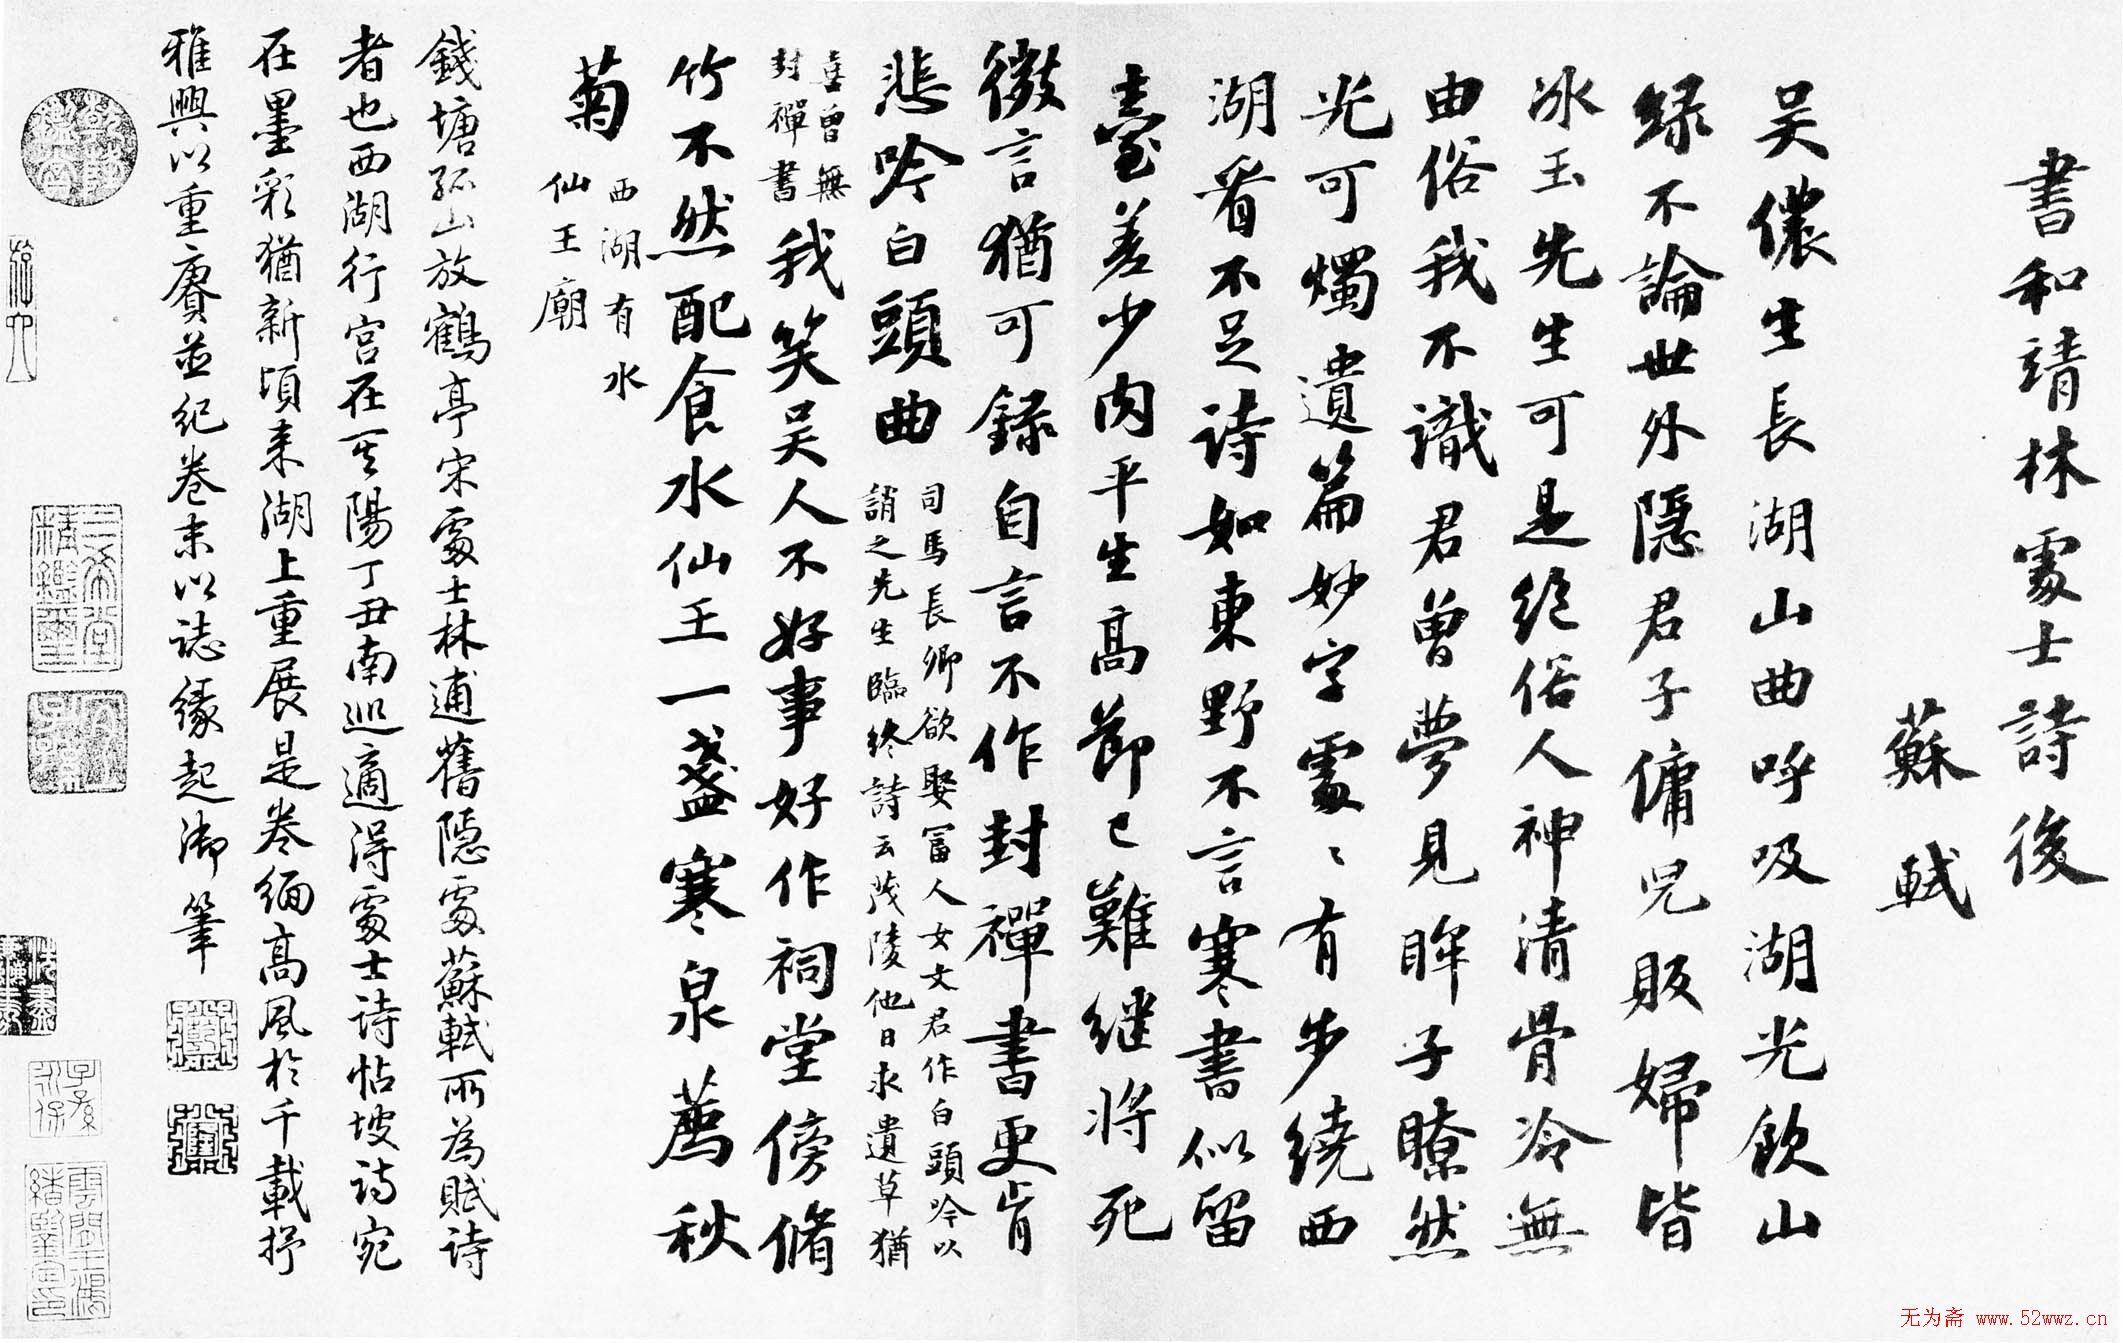 書和靖林處士詩後
蘇軾
吳儂生長湖山曲呼吸湖光飲山
綠不論世外隱君子傭兒販婦皆
冰玉先生可是絕俗人神清骨冷無
由俗我不識君曾夢見眸子瞭然
光可燭遺篇妙字處〻有步繞西
湖看不足詩如東野不言寒書似留
臺差少肉平生高節已難繼將死
微言猶可錄自言不作封禪書更肯
悲吟白頭曲
司馬長卿欲娶富人女文君作白頭吟以
誚之先生臨終詩云茂陵他日求遺草猶
喜曾無
封禪書
我笑吳人不好事好作祠堂傍脩
竹不然配食水仙王一盞寒泉薦秋
菊
西湖有水
仙王廟
錢塘孤山放鶴亭宋處士林逋舊隱處蘇軾所為賦詩
者也西湖行宮在其陽丁丑南巡適得處士詩帖坡詩宛
在墨彩猶新頃來湖上重展是卷緬高風於千載抒
雅興以重賡並紀卷末以誌緣起御筆
三希堂
精鑑璽
宜子孫
乾隆
鑑賞
子孫
永保
无为斋 www.52wwz.cn